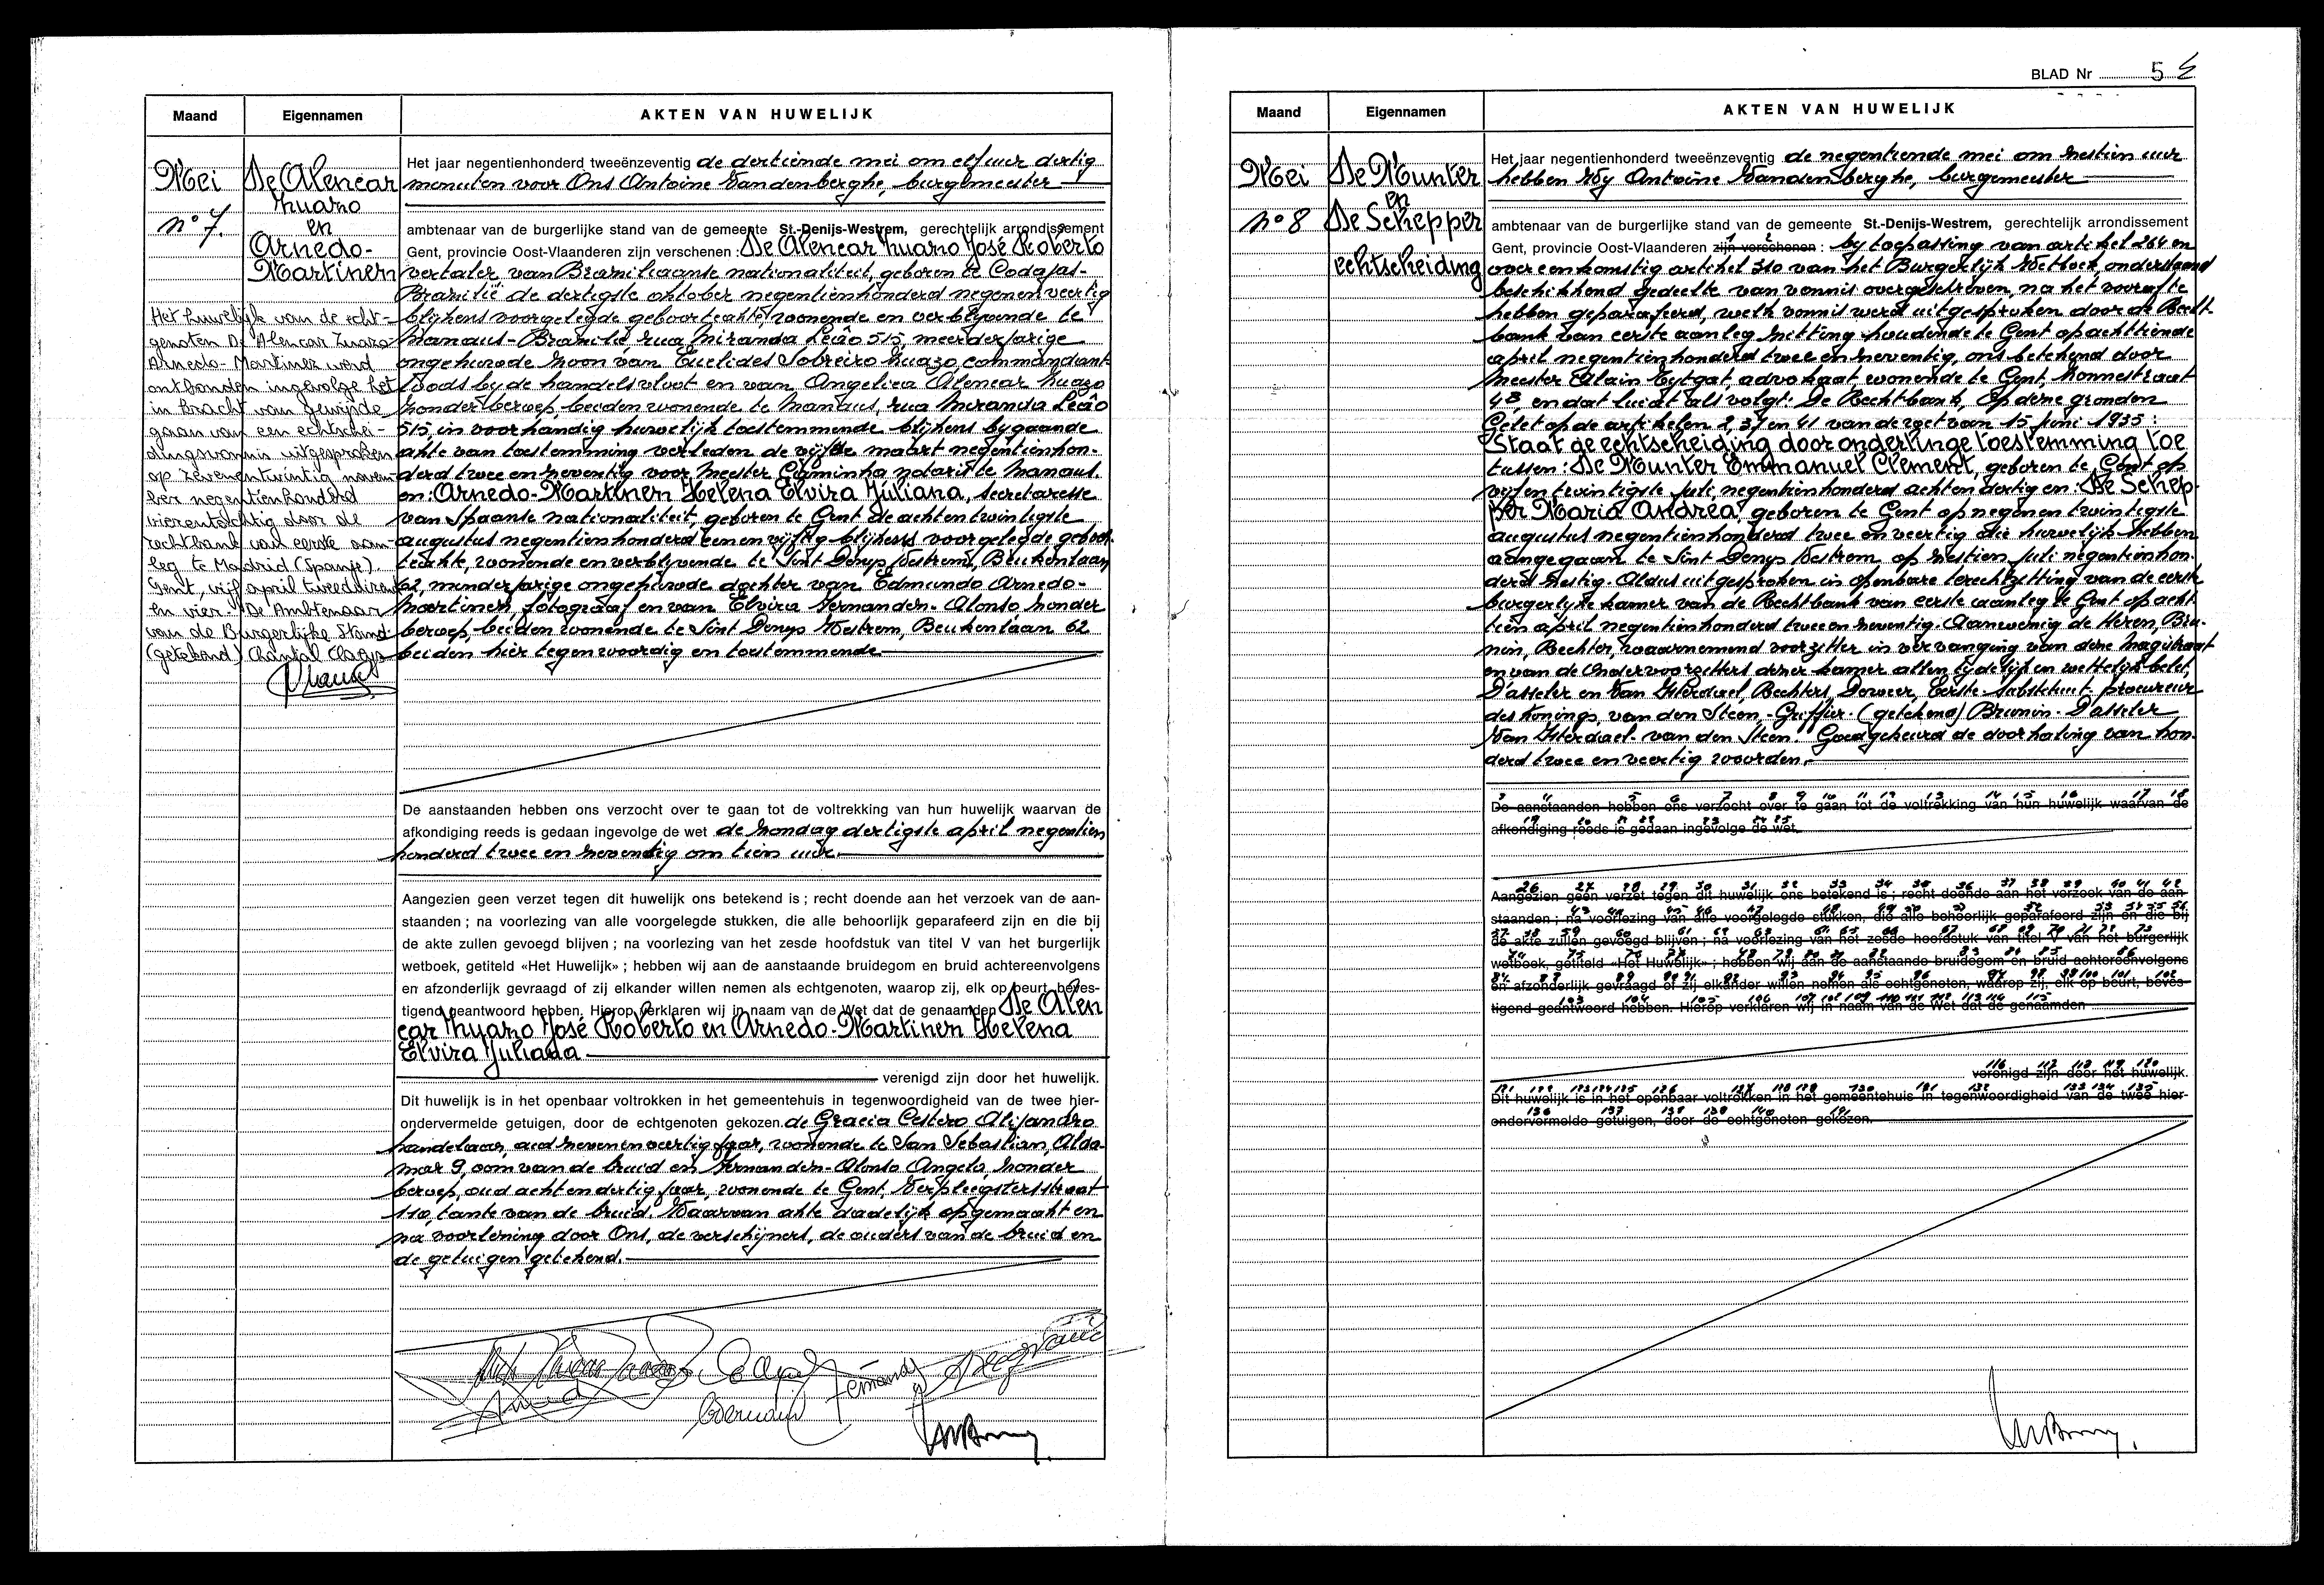 Maand
Eigennamen
AKTEN VAN HUWELIJK
Mei
n° 7.
De Alencar
Zuazo
en
Arnedo-
Martinez
Het huwelijk van de echt-
genoten De Alencar Zuazo-
Arnedo-Martinez werd
ontbonden ingevolge het
in kracht van gewijsde
gaan van een echtschei-
dingsvonnis uitgesproken
op zevenentwintig novem-
ber negentienhonderd
vierentachtig door de
rechtbank van eerste aan-
leg te Madrid (Spanje).
Gent, vijf april tweeduizend
en vier. De Ambtenaar
van de Burgerlijke Stand.
(getekend) Chantal Claeys
Het jaar negentienhonderd tweeënzeventig de dertiende mei om elf uur dertig
menuten voor Ons Antoine Vandenberghe, burgemeester
ambtenaar van de burgerlijke stand van de gemeente St.-Denijs-Westrem, gerechtelijk arrondissement
Gent, provincie Oost-Vlaanderen zijn verschenen : De Alencar Zuazo José Roberto
vertaler, van Braziliaanse nationaliteit, geboren te Codajas-
Brazilië de dertigste oktober negentienhonderd negenenveertig
blijkens voorgelegde geboorteakte, wonende en verblijvende te
Manaus-Brazilië rua Miranda Leâo 515, meerderjarige
ongehuwde zoon van Euclides Sobreiro Zuazo, commandant
loods bij de handelsvloot en van Angelica Alencar Zuazo
zonder beroep, beiden wonende te Manaus, rua Miranda Leâo
515, in voorhandig huwelijk toestemmende blijkens bijgaande
akte van toestemming verleden de vijfde maart negentienhon-
derd twee en zeventig voor Meester Caminha notaris te Manaus.
en: Arnedo-Martinez Helena Elvira Juliana, secretaresse
van Spaanse nationaliteit, geboren te Gent de achtentwintigste
augustus negentienhonderd eenenvijftig blijkens voorgelegde geboor-
teakte, wonende en verblijvende te Sint Denijs Westrem, Beukenlaan
62, minderjarige ongehuwde dochter van Edmundo Arnedo-
Martinez, fotograaf en van Elvira Fernandez-Alonso zonder
beroep, beiden wonende te Sint Denijs Westrem, Beukenlaan 62
beiden hier tegenwoordig en toestemmende
De aanstaanden hebben ons verzocht over te gaan tot de voltrekking van hun huwelijk waarvan de
afkondiging reeds is gedaan ingevolge de wet de zondag dertigste april negentien
honderd twee en zeventig om tien uur.
Aangezien geen verzet tegen dit huwelijk ons betekend is ; recht doende aan het verzoek van de aan-
staanden ; na voorlezing van alle voorgelegde stukken, die alle behoorlijk geparafeerd zijn en die bij
de akte zullen gevoegd blijven ; na voorlezing van het zesde hoofdstuk van titel V van het burgerlijk
wetboek, getiteld «Het Huwelijk» ; hebben wij aan de aanstaande bruidegom en bruid achtereenvolgens
en afzonderlijk gevraagd of zij elkander willen nemen als echtgenoten, waarop zij, elk op beurt, beves-
tigend geantwoord hebben. Hierop verklaren wij in naam van de Wet dat de genaamden De Alen
car Zuazo José Roberto en Arnedo-Martinez Helena
Elvira Juliana
verenigd zijn door het huwelijk.
Dit huwelijk is in het openbaar voltrokken in het gemeentehuis in tegenwoordigheid van de twee hier-
ondervermelde getuigen, door de echtgenoten gekozen. de Gracia Cestero Alijandro
handelaar, oud zevenenveertig jaar, wonende te San Sebastian, Alda-
mar 9, oom van de bruid en Fernandez-Alonso Angela, zonder
beroep, oud achtendertig jaar, wonende te Gent, Verpleegstersstraat
110, tante van de bruid. Waarvan akte dadelijk opgemaakt en
na voorlezing door Ons, de verschijners, de ouders van de bruid en
de getuigen getekend.
BLAD Nr 5
Maand
Eigennamen
AKTEN VAN HUWELIJK
Mei
n° 8
De Munter
en
De Schepper
echtscheiding
Het jaar negentienhonderd tweeënzeventig de negentiende mei om zestien uur
hebben Wij Antoine Vandenberghe, burgemeester
ambtenaar van de burgerlijke stand van de gemeente St.-Denijs-Westrem, gerechtelijk arrondissement
Gent, provincie Oost-Vlaanderen zijn verschenen : bij toepassing van artikel 264 en
overeenkomstig artikel 310 van het Burgerlijk Wetboek, onderstaand
beschikkend gedeelte van vonnis overgeschreven, na het vooraf te
hebben geparafeerd, welk vonnis werd uitgesproken door de Recht-
bank van eerste aanleg zitting-houdende te Gent op achttiende
april negentienhonderd twee en zeventig, ons betekend door
Meester Alain Eytgat, advokaat, wonende te Gent, Zonnestraat
4B, en dat luidt als volgt: De Rechtbank, Op deze gronden
Gelet op de artikelen 2, 37 en 41 van de wet van 15 juni 1935:
Staat de echtscheiding door onderlinge toestemming toe
tussen: De Munter Emmanuel Clement, geboren te Gent op
vijfentwintigste juli, negentienhonderd achtendertig en: De Schep-
per Maria Andrea, geboren te Gent op negenentwintigste
augustus negentienhonderd twee en veertig die huwelijk hebben
aangegaan te Sint Denijs Westrem, op zestien juli negentienhon-
derd zestig. Aldus uitgesproken in openbare terechtzitting van de eerste
burgerlijke kamer van de Rechtbank van eerste aanleg te Gent op acht-
tien april negentienhonderd twee en zeventig. Aanwezig de Heren, Bru-
nin, Rechter, waarnemend voorzitter in vervanging van deze magistraat
en van de Ondervoorzitters dezer kamer allen tijdelijk en wettelijk belet,
D'asseler en Van Isterdael, Rechters, Dorveer, Eerste-Substituut-procureur
des Konings, van den Steen,-Griffier. (getekend) Brunin-D'asseler
Van Isterdael-van den Steen. Goedgekeurd de doorhaling van hon-
derd twee en veertig woorden.
De aanstaanden hebben ons verzocht over te gaan tot de voltrekking van hun huwelijk waarvan de
afkondiging reeds is gedaan ingevolge de wet.
Aangezien geen verzet tegen dit huwelijk ons betekend is ; recht doende aan het verzoek van de aan-
staanden ; na voorlezing van alle voorgelegde stukken, die alle behoorlijk geparafeerd zijn en die bij
de akte zullen gevoegd blijven ; na voorlezing van het zesde hoofdstuk van titel V van het burgerlijk
wetboek, getiteld «Het Huwelijk» ; hebben wij aan de aanstaande bruidegom en bruid achtereenvolgens
en afzonderlijk gevraagd of zij elkander willen nemen als echtgenoten, waarop zij, elk op beurt, beves-
tigend geantwoord hebben. Hierop verklaren wij in naam van de Wet dat de genaamden
verenigd zijn door het huwelijk.
Dit huwelijk is in het openbaar voltrokken in het gemeentehuis in tegenwoordigheid van de twee hier-
ondervermelde getuigen, door de echtgenoten gekozen.